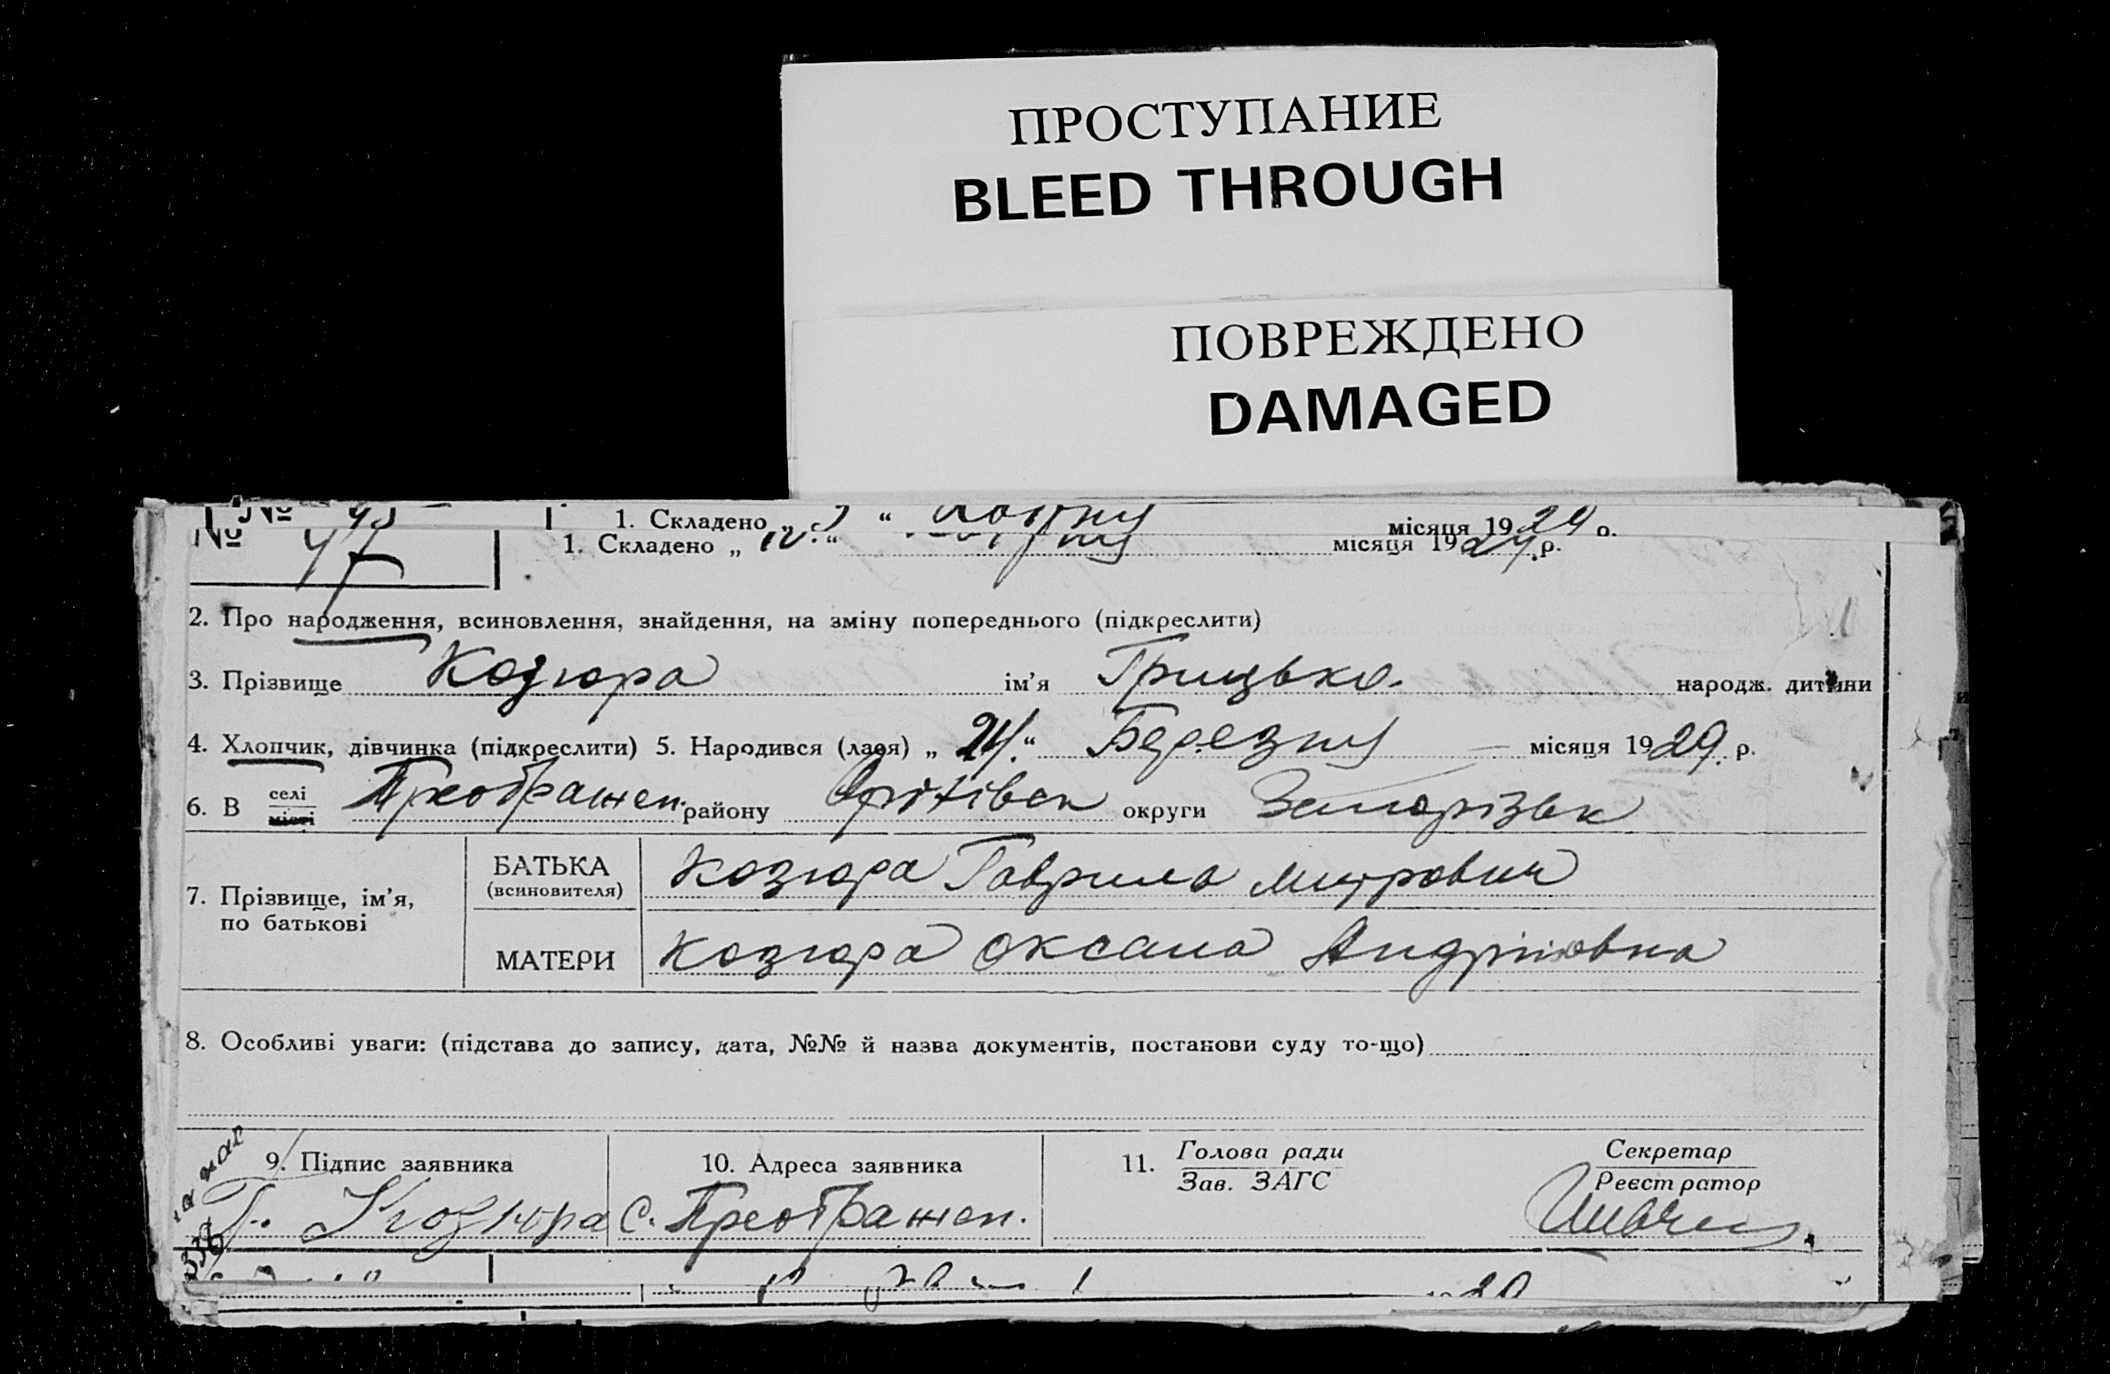 ПРОСТУПАНИЕ
BLEED THROUGH
ПОВРЕЖДЕНО
DAMAGED
№ 45 1. Складено „ 5 “ місяця 1929 р.
№ 47 1. Складено „ “ місяця 1929 р.
2. Про народження, всиновлення, знайдення, на зміну попереднього (підкреслити)
3. Прізвище Козюра ім’я Грицько. народж. дитини
4. Хлопчик, дівчинка (підкреслити) 5. Народився (лася) „ 24. “ Березну місяця 1929. р.
6. В селі місті Преображен. району Оріхівск округи Запорізьк
7. Прізвище, ім’я, по батькові
БАТЬКА (всиновителя) Козюра Гаврило Митрович
МАТЕРИ Козюра Оксана Андріїовна
8. Особливі уваги: (підстава до запису, дата, №№ й назва документів, постанови суду то-що)
9. Підпис заявника 10. Адреса заявника 11. Голова ради Зав. ЗАГС Секретар Реєстратор
Г. Козюра с. Преображен.